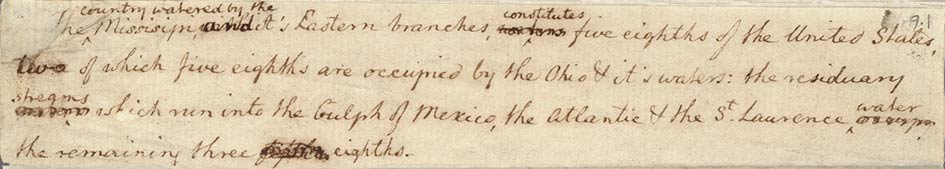 country watered by the constitutes 9.1
The Missisipi, and it's Eastern branches, five eighths of the United States,
two of which five eighths are occupied by the Ohio & it's waters: the residuary
streams water
which run into the Gulph of Mexico, the Atlantic & the St. Laurence
the remaining three eighths.